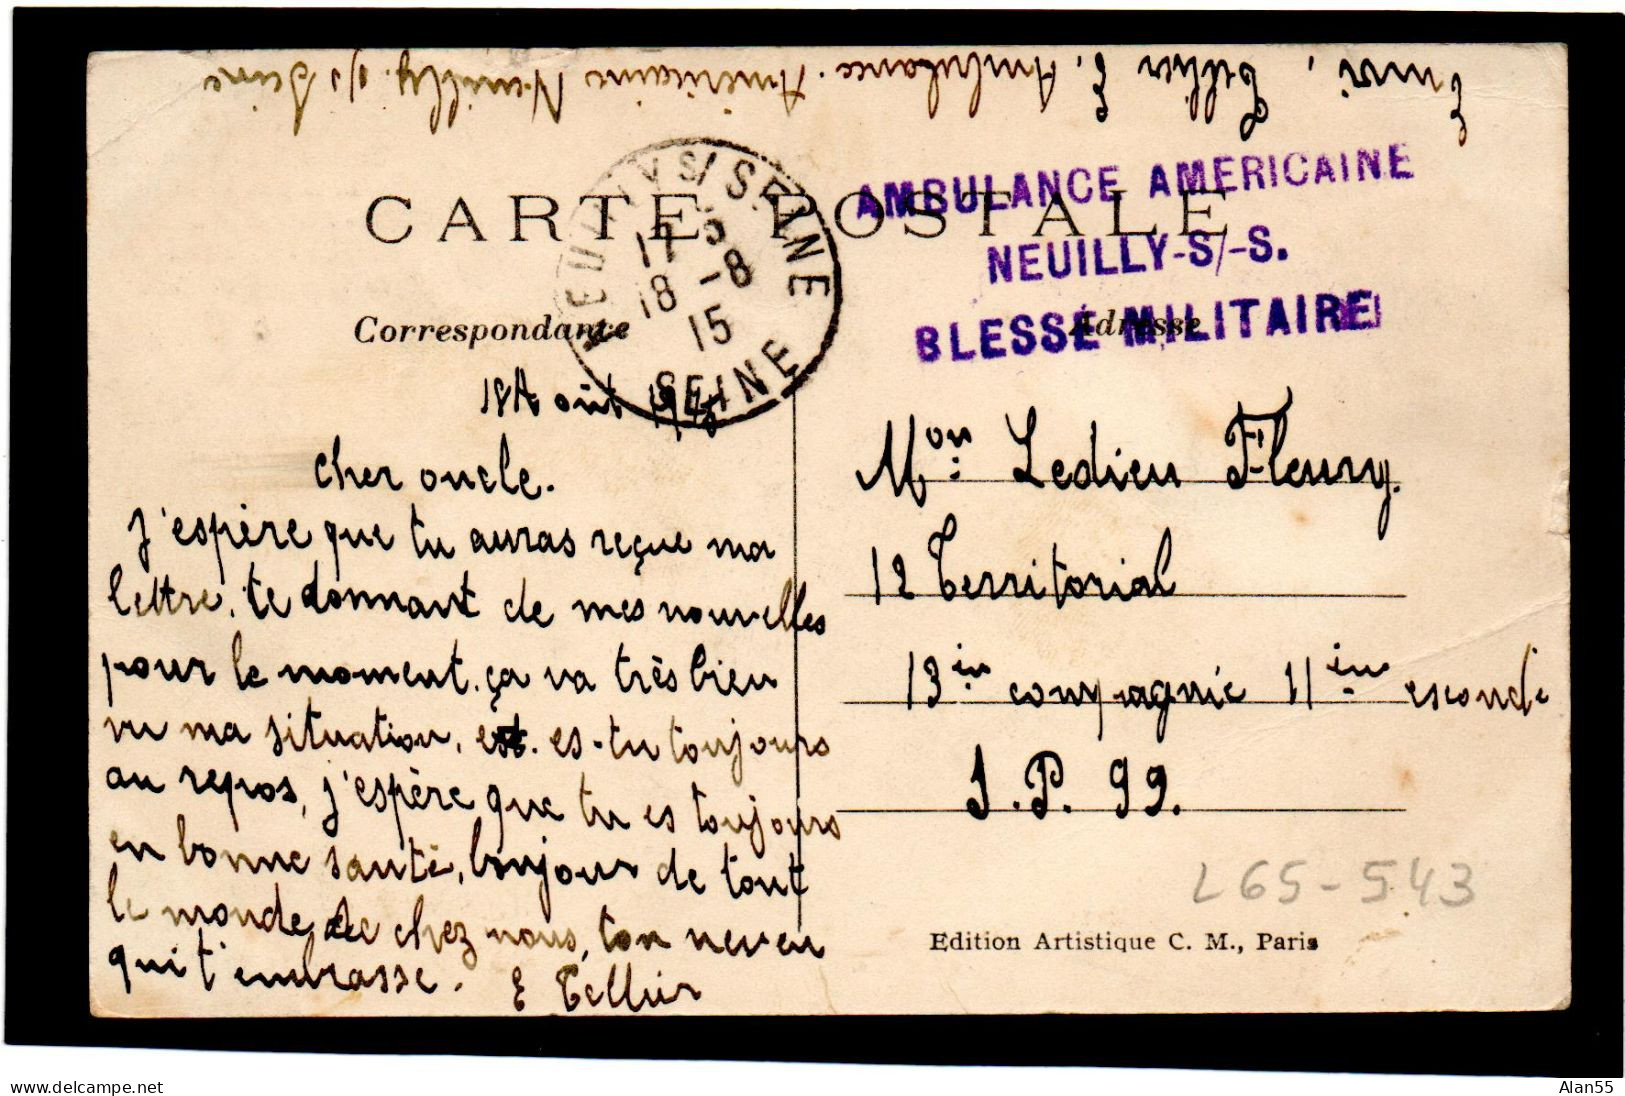 Envoi, Tellier E, Ambulance. Américaine Neuilly. s/s Seine
CARTE POSTALE
NEUILLY S/SEINE
17 35
18 -8
15
SEINE
AMBULANCE AMERICAINE
NEUILLY-S/-S.
BLESSÉ MILITAIRE
Correspondance
Adresse
18 Août 1915
Cher oncle.
J'espère que tu auras reçue ma
lettre, te donnant de mes nouvelles
pour le moment. ça va très bien
vu ma situation, es-tu toujours
au repos, j'espère que tu es toujours
en bonne santé, bonjour de tout
le monde de chez nous, ton neveu
qui t'embrasse. E Tellier
Mon: Ledieu Fleury.
12 Territorial
13 in compagnie 11 in esconde
S.P. 99.
L65-543
Edition Artistique C. M., Paris
delcampe.net
Alan55